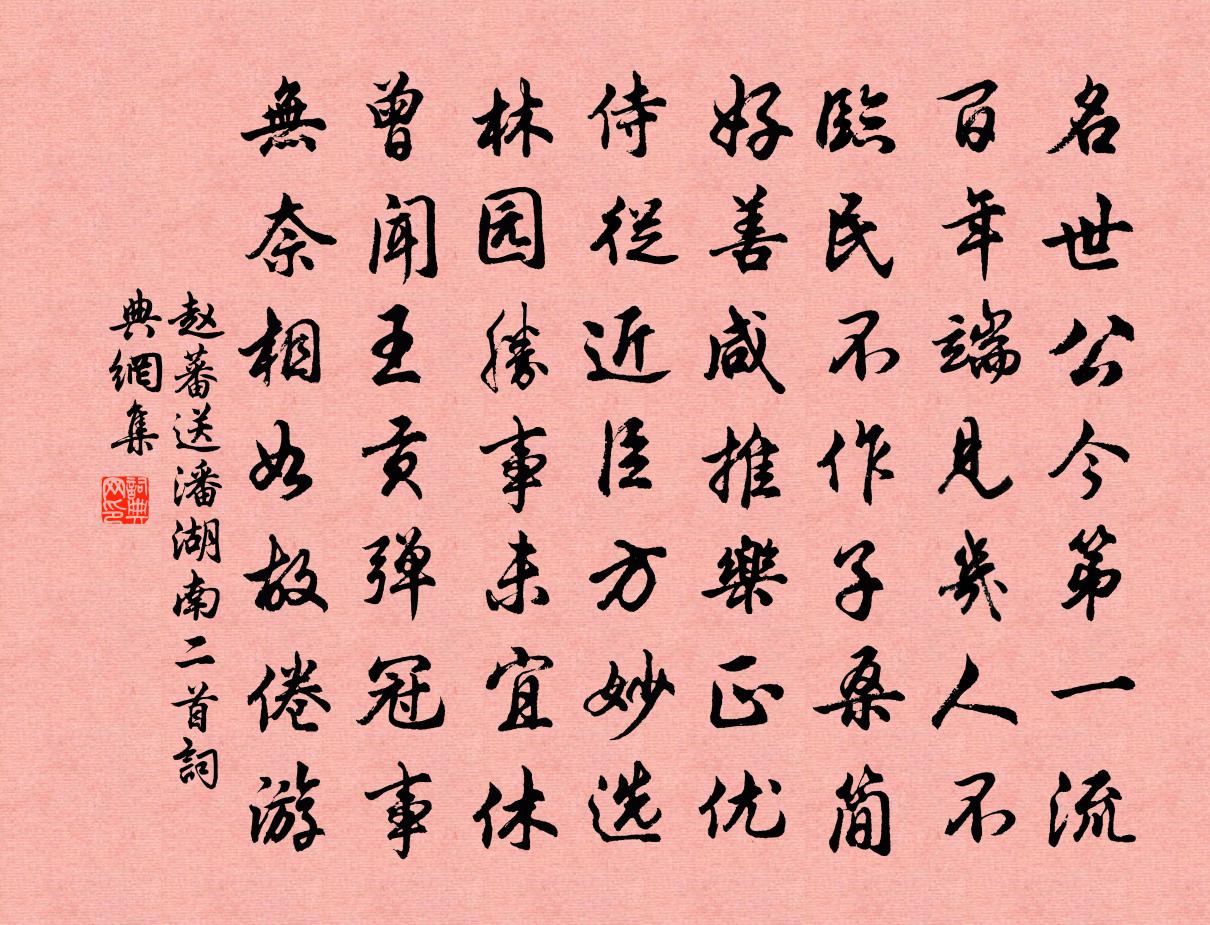 名世公今第一流
百年端见几人不
臨民不作子桑简
好善咸推樂正优
侍從近臣方妙选
林园勝事未宜休
曾闻王贡弹冠事
無奈相如故倦游
赵蕃送潘湖南二首詞
典網集
詞典网印